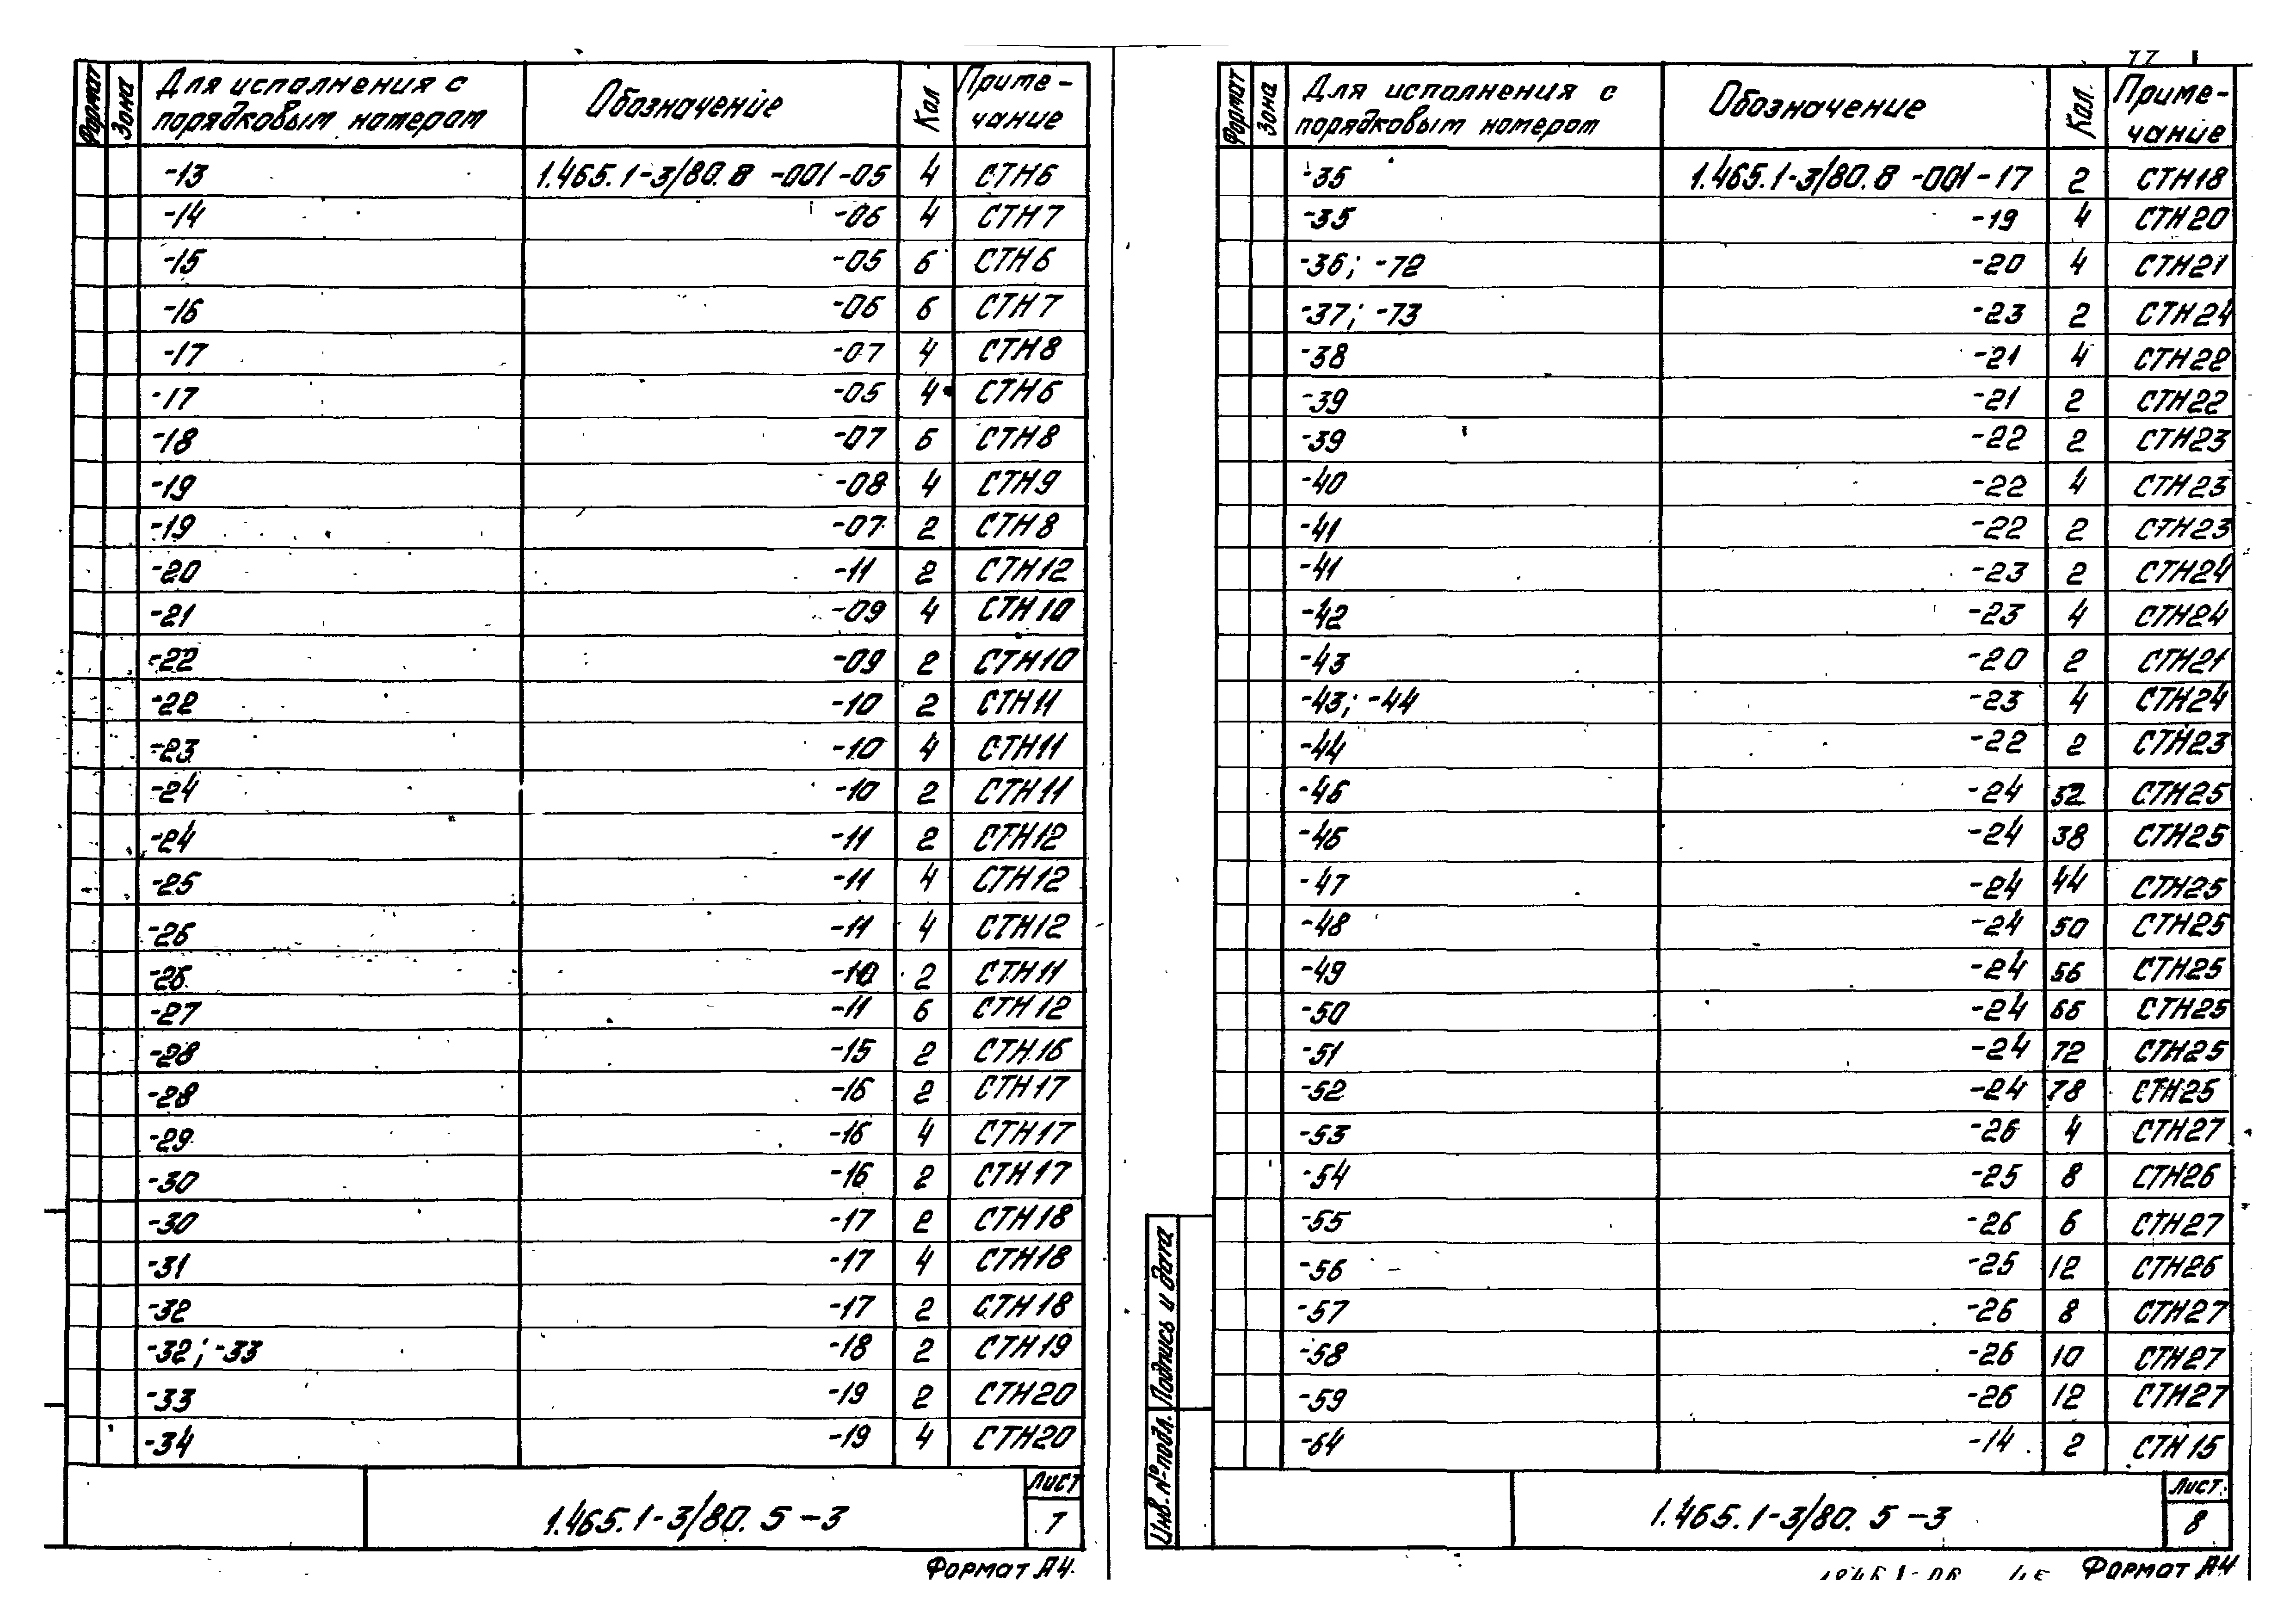 Формат Зона Для исполнения с порядковым номером Обозначение Кол Приме-чание
-13 1.465.1-3/80.8 -001 -05 4 СТН6
-14 -06 4 СТН7
-15 -05 6 СТН6
-16 -06 6 СТН7
-17 -07 4 СТН8
-17 -05 4 СТН6
-18 -07 6 СТН8
-19 -08 4 СТН9
-19 -07 2 СТН8
-20 -11 2 СТН12
-21 -09 4 СТН10
-22 -09 2 СТН10
-22 -10 2 СТН11
-23 -10 4 СТН11
-24 -10 2 СТН11
-24 -11 2 СТН12
-25 -11 4 СТН12
-26 -11 4 СТН12
-26 -10 2 СТН11
-27 -11 6 СТН12
-28 -15 2 СТН16
-28 -16 2 СТН17
-29 -16 4 СТН17
-30 -16 2 СТН17
-30 -17 2 СТН18
-31 -17 4 СТН18
-32 -17 2 СТН18
-32; -33 -18 2 СТН19
-33 -19 2 СТН20
-34 -19 4 СТН20
1.465.1-3/80. 5 -3
Лист
7
Формат А4
Формат Зона Для исполнения с порядковым номером Обозначение Кол. Приме-чание
-35 1.465.1-3/80.8 -001 -17 2 СТН18
-35 -19 4 СТН20
-36; -72 -20 4 СТН21
-37; -73 -23 2 СТН24
-38 -21 4 СТН22
-39 -21 2 СТН22
-39 -22 2 СТН23
-40 -22 4 СТН23
-41 -22 2 СТН23
-41 -23 2 СТН24
-42 -23 4 СТН24
-43 -20 2 СТН21
-43; -44 -23 4 СТН24
-44 -22 2 СТН23
-46 -24 32 СТН25
-46 -24 38 СТН25
-47 -24 44 СТН25
-48 -24 50 СТН25
-49 -24 56 СТН25
-50 -24 66 СТН25
-51 -24 72 СТН25
-52 -24 78 СТН25
-53 -26 4 СТН27
-54 -25 8 СТН26
-55 -26 6 СТН27
-56 -25 12 СТН26
-57 -26 8 СТН27
-58 -26 10 СТН27
-59 -26 12 СТН27
-64 -14 2 СТН15
Инв. № подл. Подпись и дата
1.465.1-3/80. 5 -3
Лист
8
Формат А4